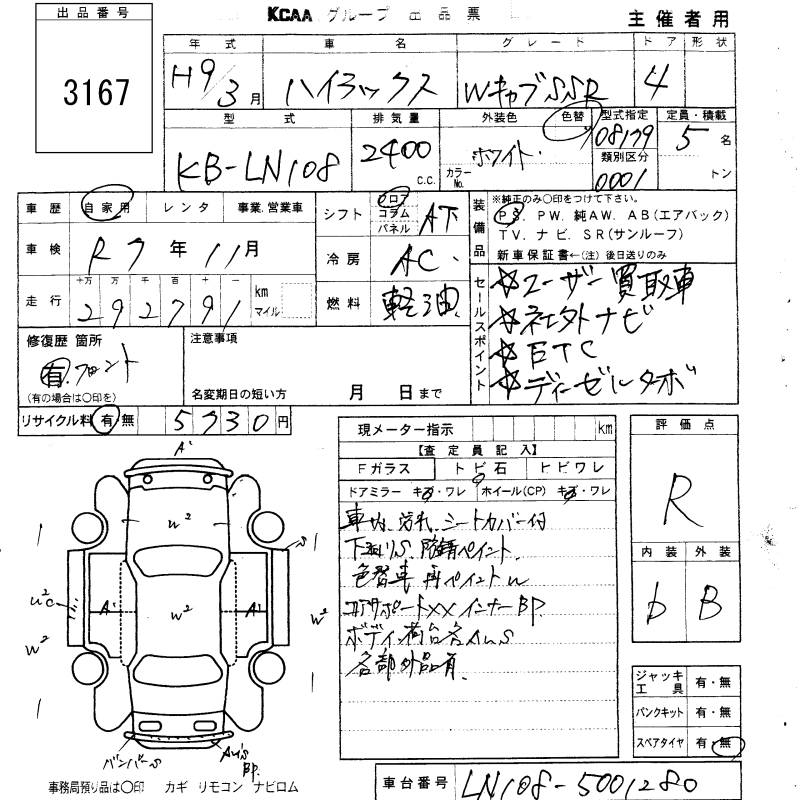 KCAA グループ 出品票
主催者用
出品番号
3167
年式 車名 グレード ドア 形状
H9/3月 ハイラックス Wキャブ SSR 4
型式 排気量 外装色 色替 型式指定 定員・積載
KB-LN108 2400 C.C. ホワイト カラーNo. 08179 5名
類別区分
0001 トン
車歴 自家用 レンタ 事業.営業車
シフト フロア コラム パネル AT
装備品
※純正のみ○印をつけて下さい。
PS. PW. 純AW. AB(エアバック)
TV. ナビ. SR(サンルーフ)
新車保証書←(注)後日送りのみ
車検 R7年11月
冷房 AC
走行 十万 万 千 百 十 一
292791 km マイル
燃料 軽油
セールスポイント
☆ユーザー買取車
☆社外ナビ
☆ETC
☆ディーゼルターボ
修復歴 箇所
有.フロント
(有の場合は○印を)
注意事項
名変期日の短い方 月 日まで
リサイクル料 有/無 5730円
現メーター指示 km
【査定員記入】
Fガラス トビ石 ヒビワレ
ドアミラー キズ・ワレ ホイール(CP) キズ・ワレ
車内汚れ シートカバー付
下廻りS 防錆ペイント
色替車 再ペイントW
コアサポートXX インナーBP
ボディ・荷台各AUS
各部外品有
評価点
R
内装 外装
D B
ジャッキ 工具 有・無
パンクキット 有・無
スペアタイヤ 有・無
A'
W²
W²
A' A'
W²C
W²
W²
S
バンパーS
AU'S
BP.
事務局預り品は○印 カギ リモコン ナビロム
車台番号 LN108-5001280